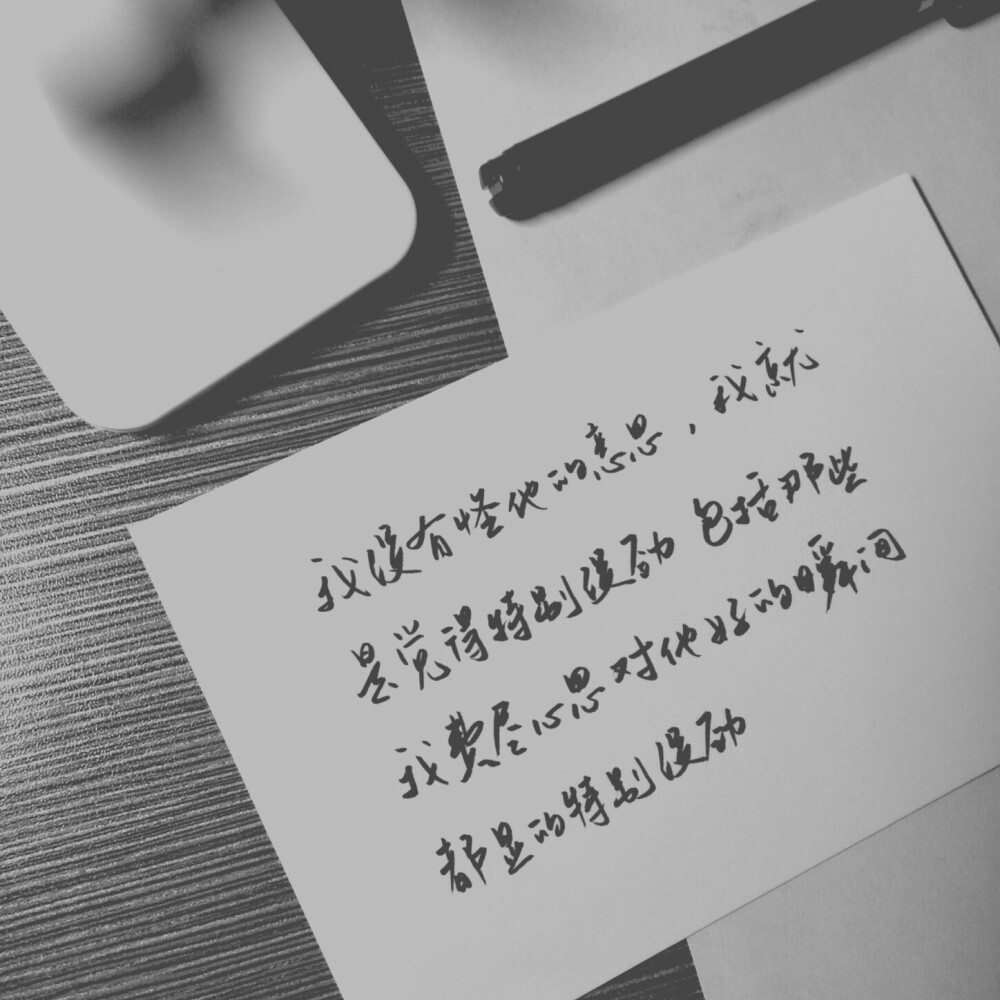 我没有怪他的意思，我就
是觉得特别没劲 包括那些
我费尽心思对他好的瞬间
都显的特别没劲